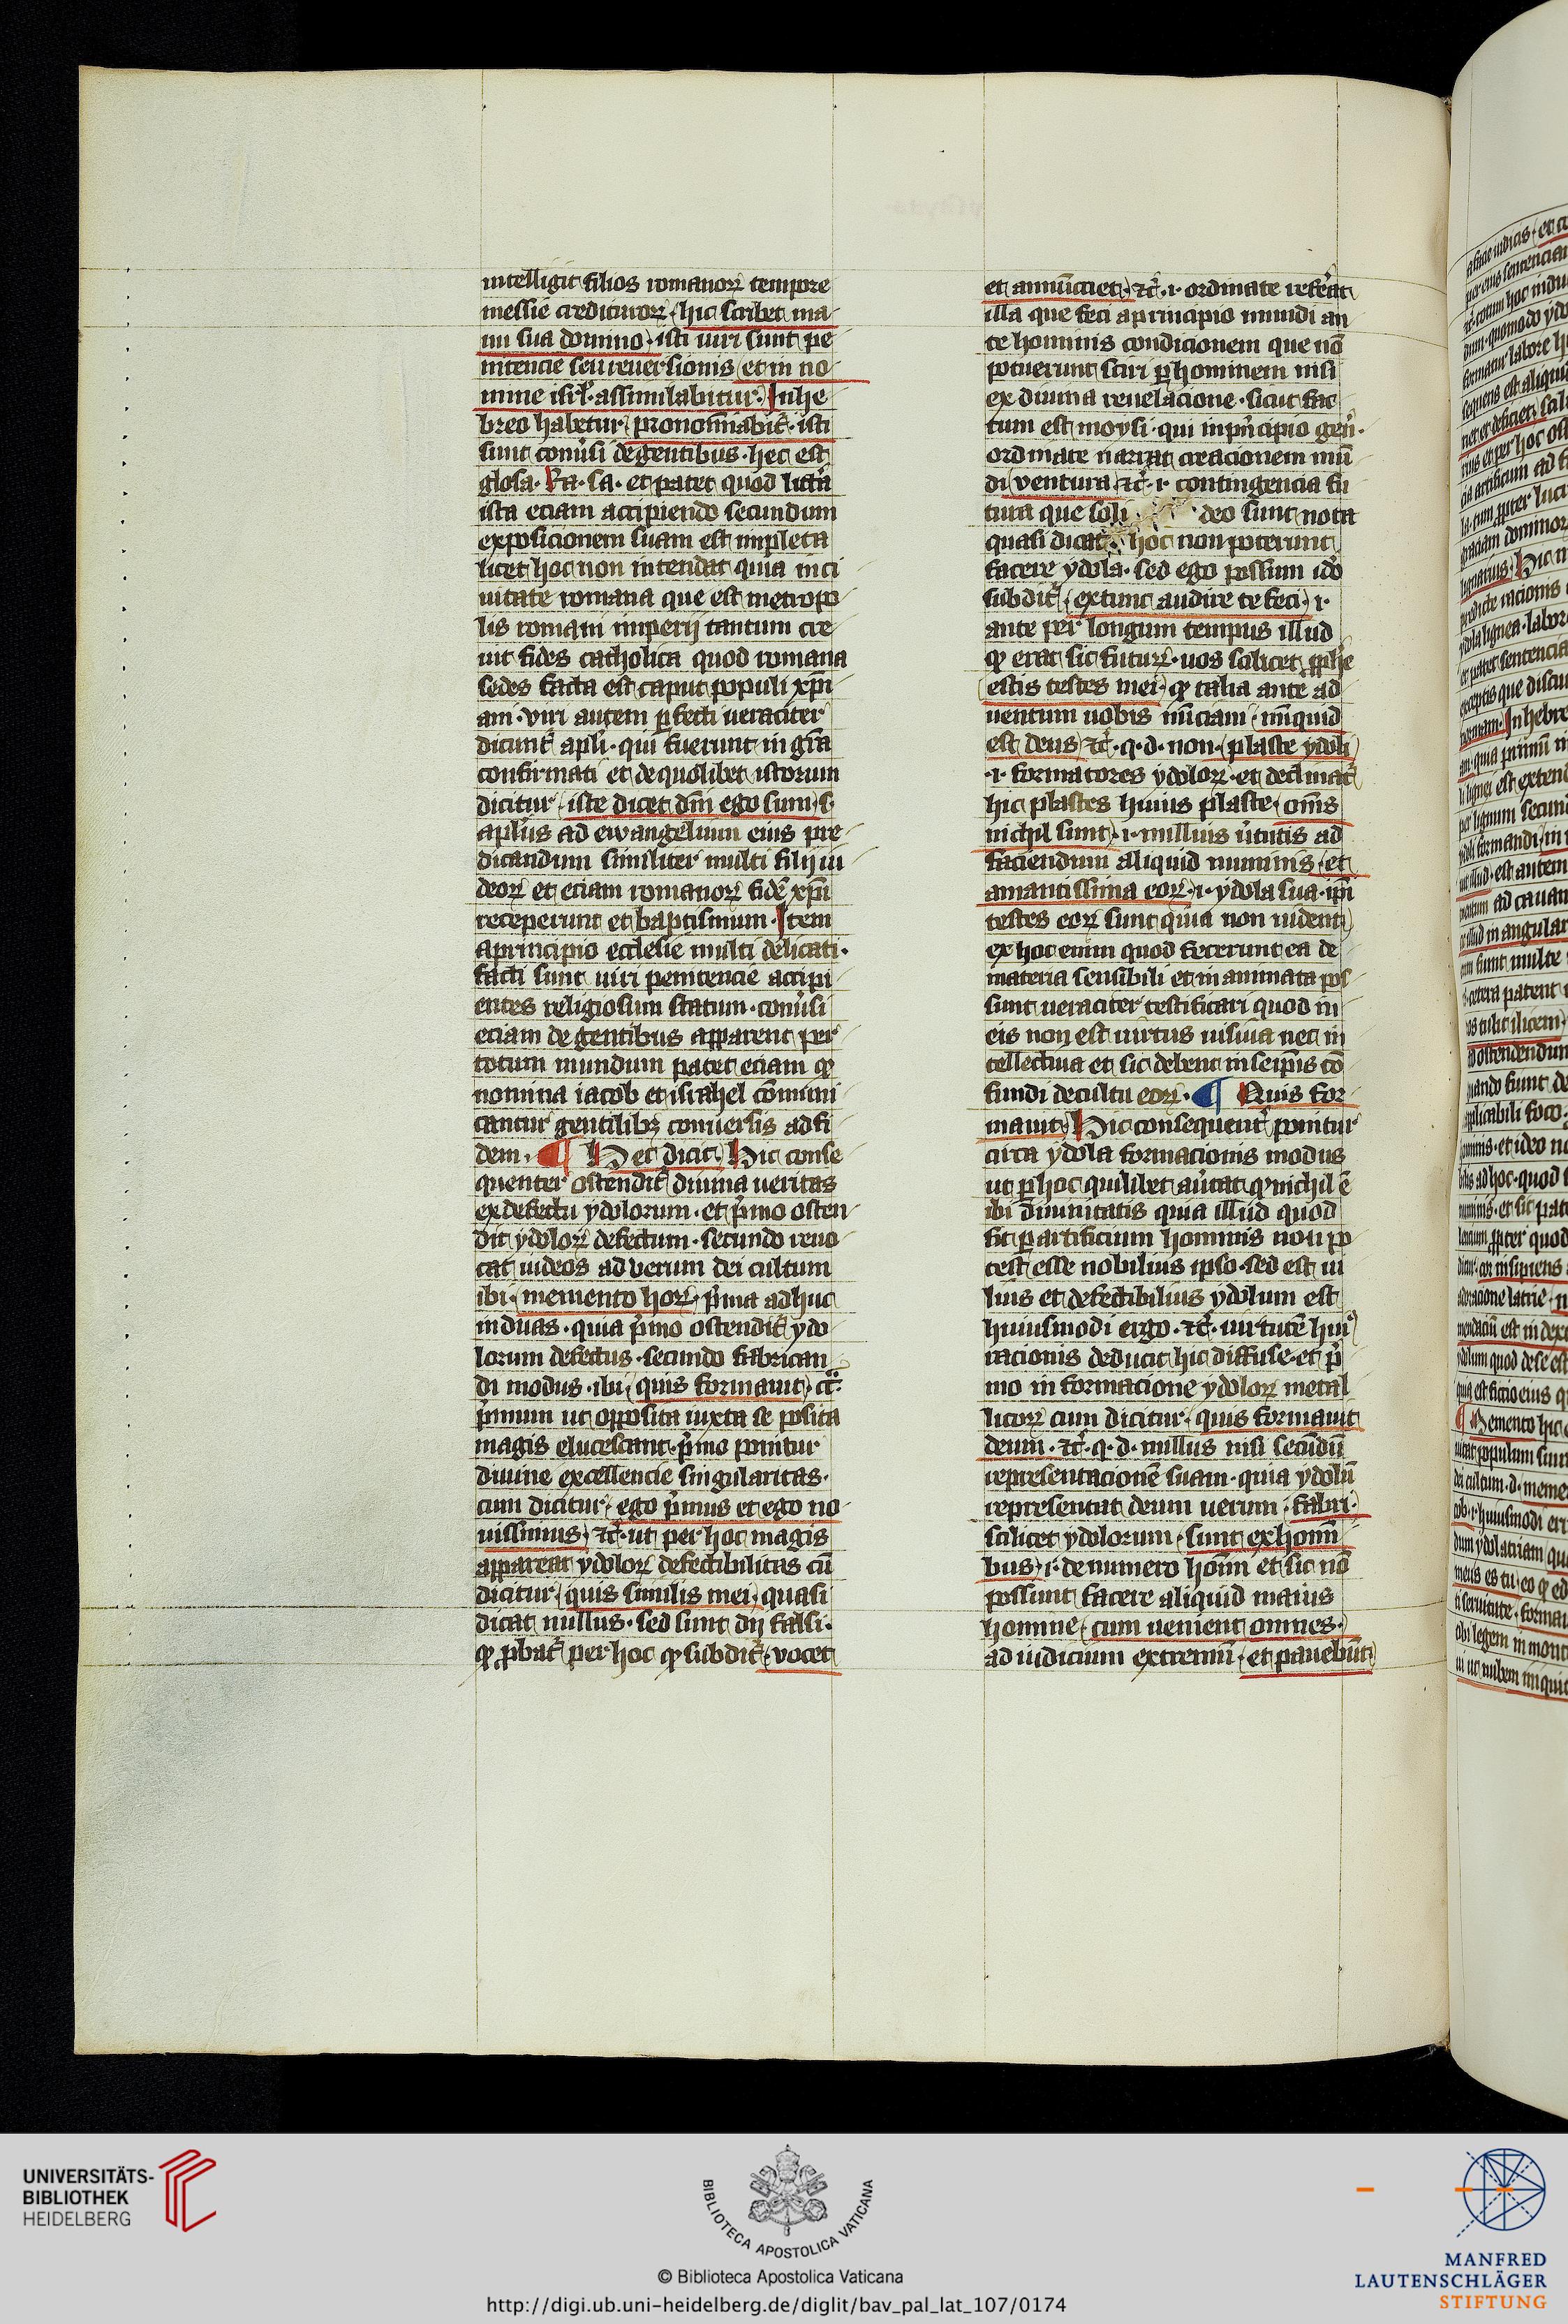 intelligit filios romanoꝝ tempore
messie crediturorꝝ hic scribet ma
nu sua domino isti uiri sunt pe
nitencie seu reuersionis et in no
mine isrl̓ assimilabitur. In he
breo habetur pronom̄iabit᷑ · isti
sunt conu̓si de gentibus · hec est
glosa · Ra · sa · et patet quod litt̓a
ista eciam accipiendo secundum
exposicionem suam est impleta
licet hoc non intendat quia in ci
uitate romana que est metropo
lis romani imperij tantum cre
uit fides catholica quod romana
sedes facta est caput populi xp̄i
ani · viri autem ꝑfecti ueraciter
dicunt᷑ apl̓i · qui fuerunt in gr̄a
confirmati et de quolibet istorum
dicitur iste dicet dn̄i ego sum s·
apl̓us ad ewangelium eius pre
dicandum similiter multi filij iu
deoꝝ et eciam romanoꝝ fidē xp̄i
receperunt et baptismum · Item
a principio ecclesie multi delicati ·
facti sunt uiri penitencie accipi
entes religiosum statum · conu̓si
eciam de gentibus apparent per
totum mundum patet eciam ꝙ
nomina iacob et israhel cōmuni
cantur gentilibꝫ conuersis ad fi
dem · ¶ Hec dicit Hic conse
quenter ostendit᷑ diuina ueritas
ex defectu ydolorum · et p̓mo osten
dit ydoloꝝ defectum · secundo reuo
cat iudeos ad verum dei cultum
ibi · memento hoꝝ · p̓ma adhuc
in duas · quia p̓mo ostendit᷑ ydo
lorum defectus · secundo fabrican
di modus · ibi quis formauit · ⁊c̓ ·
p̓mum ut opposita iuxta se posita
magis elucescant p̓mo ponitur
diuine excellencie singularitas ·
cum dicitur ego p̓mus et ego no
uissimus ⁊c̓ · ut per hoc magis
appareat ydoloꝝ defectibilitas cū
dicitur quis similis mei quasi
dicat nullus · sed sunt dij falsi ·
ꝙ ꝓbat᷑ per hoc ꝙ subdit᷑ · vocet
et annūciet · ⁊c̓ · i · ordinate refe̓at
illa que feci a principio mundi an
te hominis condicionem que nō
potuerunt sciri ꝑ hominem nisi
ex diuina reuelacione · sicut fac
tum est moysi · qui in p̓ncipio gen̓ ·
ordinate narrat creacionem mū
di ventura ⁊c̓ · i · contingencia fu
tura que soli deo sunt nota
quasi dicat hoc non poterunt
facere ydola · sed ego possum ido̓
subdit᷑ extunc audire te feci i ·
ante per longum tempus illud
ꝙ erat sic futuꝝ · uos scilicet ꝓph̓e
estis testes mei ꝙ talia ante ad
uentum uobis nūciaui nūquid
est deus ⁊c̓ · q · d · non · plaste ydoli
· i · formatores ydoloꝝ · et declinat᷑
hic plastes huius plaste om̄s
nichil sunt · i · nullius u̓tutis ad
faciendum aliquid numinis et
amantissima eoꝝ · i · ydola sua · ip̄i
testes eoꝝ sunt quia non uident
ex hoc enim quod fecerunt ea de
materia sensibili et inanimata pos
sunt ueraciter testificari quod in
eis non est uirtus uisiua nec in
tellectiua et sic debent in seip̄is cō
fundi de cultu eoꝝ · ¶ Quis for
mauit Hic consequent᷑ ponitur
circa ydola formacionis modus
ut ꝑ hoc quilibet au̓tat ꝙ nichil ē
ibi diuinitatis quia illud quod
fit ꝑ artificium hominis non po
test esse nobilius ipso · sed est ui
lius et defectibilius ydolum est
huiusmodi ergo · ⁊c̓ · uirtutē hui᷒
racionis deducit hic diffuse · et p̓
mo in formacione ydoloꝝ metal
licoꝝ cum dicitur · quis formauit
deum · ⁊c̓ · q · d · nullus nisi secūdū
representacionē suam · quia ydolū
representat deum uerum · fabri ·
scilicet ydolorum · sunt ex homī
bus i · de numero homī et sic nō
possunt facere aliquid maius
homine cum uenient omnes ·
ad iudicium extremū · et pauebūt
UNIVERSITÄTS-
BIBLIOTHEK
HEIDELBERG
BIBLIOTECA APOSTOLICA VATICANA
© Biblioteca Apostolica Vaticana
http://digi.ub.uni-heidelberg.de/diglit/bav_pal_lat_107/0174
MANFRED
LAUTENSCHLÄGER
STIFTUNG